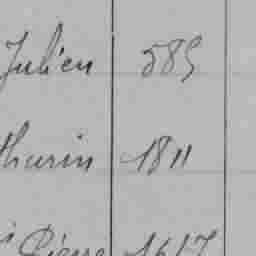 Julien 585
thurin 1811
Pierre 1617